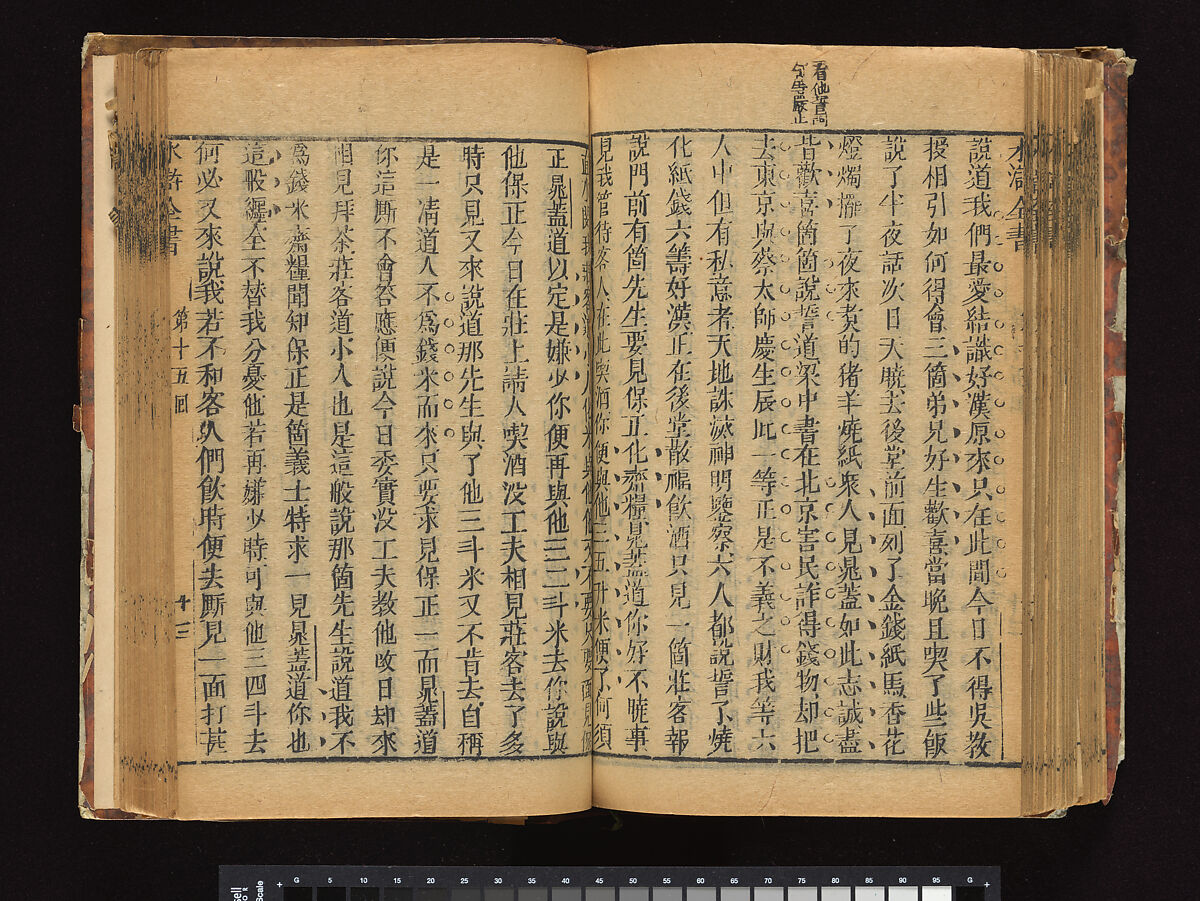 看他誓詞
句句嚴正
水滸全書
說道我們最愛結識好漢原來只在此間今日不得吳教
授相引如何得會三箇弟兄好生歡喜當晚且喫了些飯
說了半夜話次日天曉去後堂前面列了金錢紙馬香花
燈燭擺了夜來煑的猪羊燒紙衆人見晁蓋如此志誠盡
皆歡喜箇箇說誓道梁中書在北京害民詐得錢物却把
去東京與蔡太師慶生辰此一等正是不義之財我等六
人中但有私意者天地誅滅神明鑒察六人都說誓了燒
化紙錢六籌好漢正在後堂散福飲酒只見一箇莊客報
說門前有箇先生要見保正化齋糧晁蓋道你好不曉事
見我管待客人在此喫酒你便與他三五升米便了何須
正晁蓋道以定是嫌少你便再與他三二斗米去你說與
他保正今日在莊上請人喫酒没工夫相見莊客去了多
時只見又來說道那先生與了他三斗米又不肯去自稱
是一凊道人不爲錢米而來只要求見保正一面晁蓋道
你這厮不會答應便說今日委實没工夫教他改日却來
相見拜茶莊客道小人也是這般說那箇先生說道我不
爲錢米齋糧聞知保正是箇義士特求一見晁蓋道你也
這般纒全不替我分憂他若再嫌少時可與他三四斗去
何必又來說我若不和客人們飲時便去厮見一面打甚
水滸全書
第十五回
十三
G 5 10 15 20 25 30 35 40 45 50 55 60 65 70 75 80 85 90 95 G